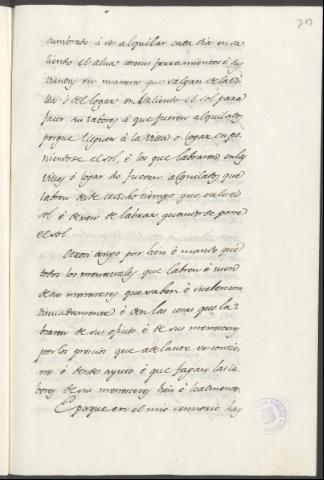 tumbrado á se alquilar cada dia en sa-
liendo el alua con sus ferramientos é
viandas en manera que salgan de la Vi-
lla ó del Logar en saliendo el sol para
facer sus labores á que fueren alquilados,
porque lleguen á la Villa ó logar en po-
niendose el sol, é los que labraren en las
Villas ó logar do fueren alquilados, que
labren desde el dicho tiempo que sale el
sol é dexen de labrar quando se pone
el sol.
Otrosi tengo por bien é mando que
todos los menestrales que labren é usen
de sus menesteres que saben é suelen con-
tinuadamente é den las cosas que la-
braren de sus oficios é de sus menesteres
por los precios que adelante se contie-
ne é dende ayuso é que fagan las la-
bores de sus menesteres bien é lealmente.
Et porque en el mio sennorio hay